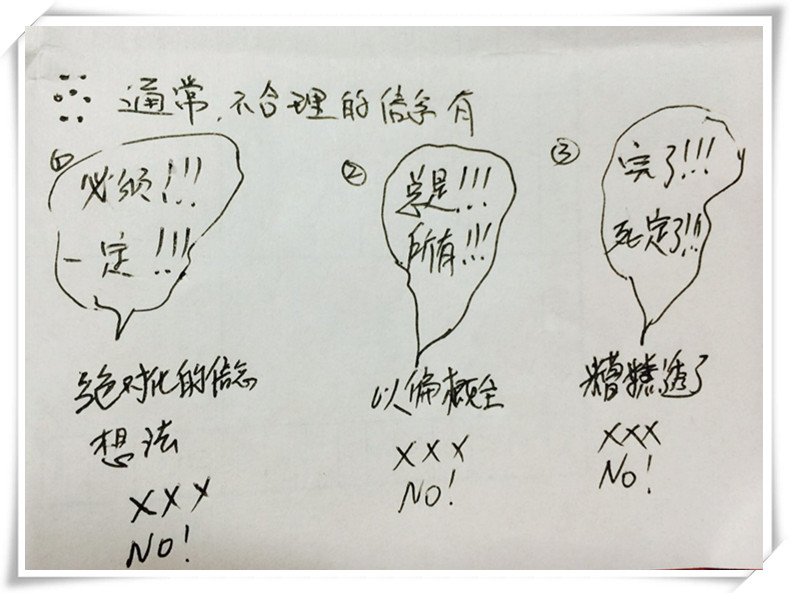 通常,不合理的信念有
①
必须!!!
一定!!!
绝对化的信念
想法
XXX
NO!
②
总是!!!
所有!!!
以偏概全
XXX
NO!
③
完了!!!
死定了!!!
糟糕透了
XXX
NO!